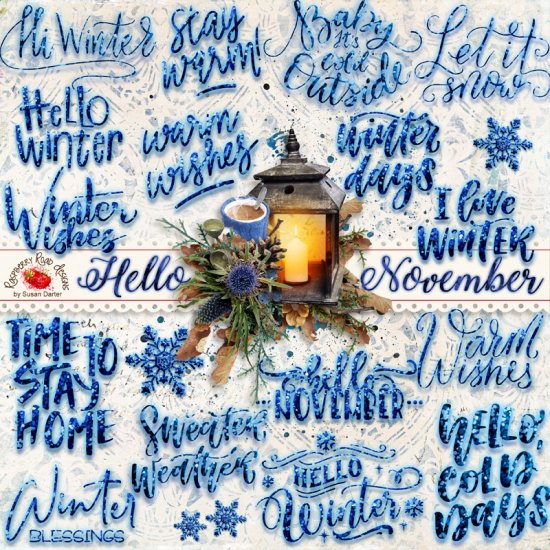 Hi Winter
Stay
warm!
Baby
it's
cold
Outside
Let it
snow
Hello
Winter
warm
wishes
Winter
days
Winter
Wishes
I love
Winter
Raspberry Road Designs
by Susan Darter
Hello November
TIME TO
STAY
HOME
hello
NOVEMBER
Warm
Wishes
Sweater
Weather
HELLO
Winter
HELLO,
COLD
DAYS
Winter
BLESSINGS